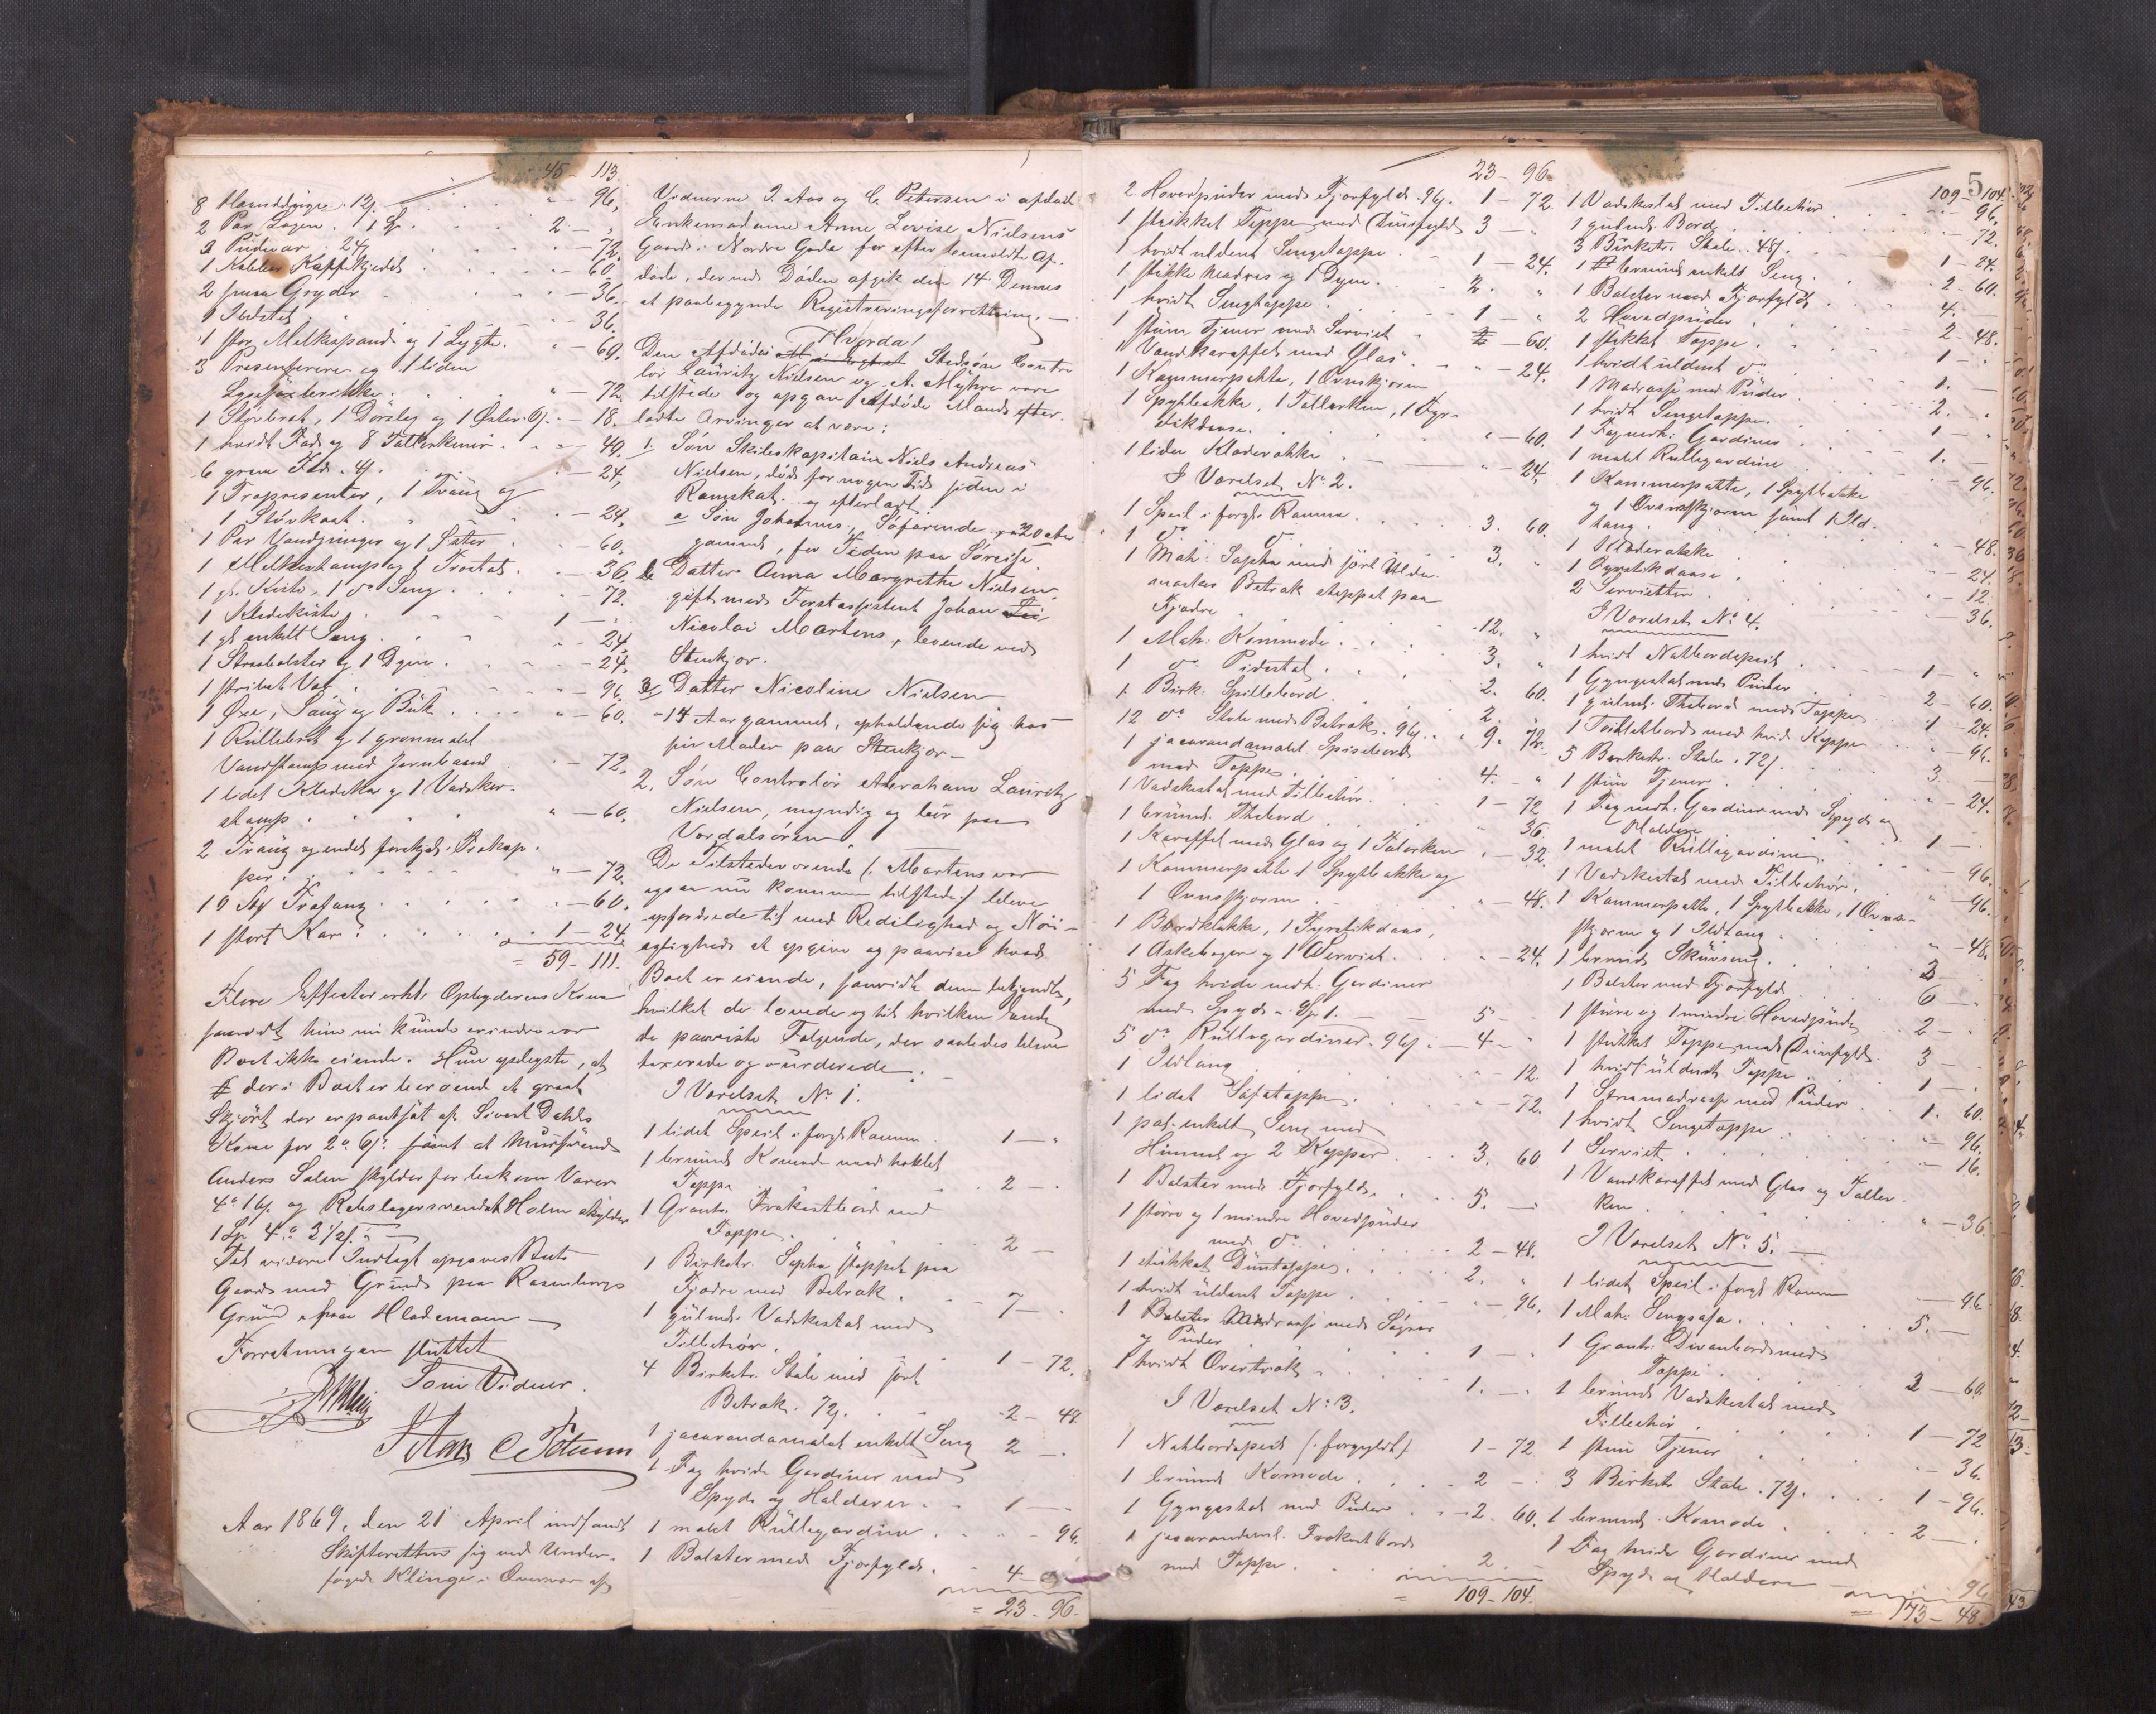 45 - 113.
8 Haanddûger 12s. " - 96,
2 Par Lagen 1 Sp. 2 - "
2 Pudevar 24s - 72.
1 Kobber Kaffekjedel - 60.
2 smaa Gryder - 36.
1 Ildstel - 36.
1 stor Melkespand og 1 Lygte. - 60.
3 Presenterere og 1 liden
Lysesaxbrikke. " - 72.
1 Strøbret, 1 Dørslag og 1 Øster - 18.
1 hvidt Fad og 8 Tallerkener. - 40.
6 grøne Fade 4s. - 24,
1 Træpresenter, 1 Traug og
1 Støvkost. - 24,
1 Par Vandspringer og 1 Sæter - 60.
1 Melkestamp og 1 Trefad. - 36.
1 gl. Kiste, 1 do Seng. - 72.
1 Klædekiste 1 - "
1 gl. enkelt Seng. - 24,
1 Straabolster og 1 Dyne. - 24,
1 stribet Vær. - 96.
1 Øxe, Saug og Buk. " - 60.
1 Rullebret og 1 grønmalet
Vandstamp med Jernbaand - 72.
1 lidet Klædekar og 1 Vadsker-
stamp. " - 60.
2 Traug og endel forskjel. Træskap-
per. " - 72.
10 Trefang. - 60.
1 stort Kar. 1 - 24.
= 59 - 111.
Flere Effecter erkl. Opbyderens Kone
saavidt hun nu kunde erindre var
Boet ikke eiende. Hun oplyste, at
der i Boet er beroende et graat
Skjørt der er pantsat af Sivert Dahls
Kone for 2 o 6s. samt at Muursvend
Anders Salen skylder for bekomne Varer
4 o 16s. og Rebslagersvendet Holm skylder
1 Sp. 4 o 3 1/2 s.
Til videre Indtægt opgaves Boets
Gaard med Grund paa Rosenborgs
Grund paa Hlademoen
Forretningen sluttet
Som Vidner.
J Aas C Petersen
Aar 1869, den 21 April indfandt
Skifteretten sig ved Under-
foged Klinge i Overvær af
Vidnerne J. Aas og C. Petersen i afdøde
Enkemadame Anne Lovise Nielsens
Gaard i Nordre Gade for efter bemeldte Af-
døde, der ved Døden afgik den 14 Dennes
at paabegynde Registreringsforretning. -
Hvorda!
Den Afdødes Stedsøn Contro
lør Lauritz Nielsen og A. Myhre vare
tilstede og opgav Afdøde Mands efter-
ladte Arvinger at være:
1. Søn Skibskapitain Niels Andreas
Nielsen, død for nogen Tid siden i
Ramskat. og efterladt:
a Søn Johannes, Søfarende, 20 Aar
gammel, for Tiden paa Søreise.
b Datter Anna Margrethe Nielsen,
gift med Forstassistent Johan
Nicolai Martens, boende ved
Stenkjær.
3. Datter Nicoline Nielsen
- 17 Aar gammel, opholdende sig hos
sin Moder paa Stenkjær -
2. Søn Controlør Abraham Lauritz
Nielsen, myndig og boer paa
Værdalsøren.
De Tilstedeværende (: Martens var
ogsaa nu kommen tilstede :) bleve
opfordrede til med Redelighed og Nøi-
agtighed at opgive og paavise hvad
Boet er eiende, saavidt dem bekjendt,
hvilket de lovede og til hvilken Ende
de paaviste Følgende, der saaledes bleve
taxerede og vurderede:
I Værelset No 1.
1 lidet Speil i forgl. Ramme 1 - "
1 brunm. Komode med hæklet
Teppe 2 - .
1 Grantr. Frokostbord med
Teppe. 2 -
1 Birketr. Sopha stoppet paa
Fjædre med Betræk. 7 - .
1 gulmt. Vadskestel med
Tilbehør. 1 - 72.
4 Birketr. Stole med sort
Betræk. 72s. 2 - 48.
1 jacarandamalet enkelt Seng 2 - .
1 Fag hvide Gardiner med
Spyd og Holdere. 1 - .
1 malet Rullegardin. - 96.
1 Bolster med Fjærfyld. 4 -
= 23 - 96.
23 - 96.
2 Hovedpuder med Fjærfyld. 96s. 1 - 72.
1 stikket Teppe med Duunfyld 3 - "
1 hvidt uldent Sengeteppe. 1 - 24.
1 stikke Madras og 1 Dyne. 2. "
1 hvidt Sengteppe. 1 - "
1 stum Tjener med Serviet - 60.
1 Vandkaraffel med Glas. " - 24.
1 Kammerpotte, 1 Ovnskjærm
1 Spytbakke, 1 Tallerken, 1 Fyr-
stikdaase. " - 60.
1 liden Klædekakke - 24,
I Værelset No 2.
1 Speil i forgl. Ramme. 3. 60.
1 do do 3. "
1 Mah. Sopha med sort Ulda-
maskes Betræk stoppet paa
Fjædre 12. "
1 Mah. Kommode. 3. "
1 do Pidestal. 2. 60.
1 Birk. Spillebord. 2. "
12 do Stole med Betræk. 96s. 9. 72.
1 jacarandamalet Spisebord
med Teppe. 4. "
1 Vadskestel med Tilbehør. 1 - 72
1 brunm. Thebord 36.
1 Karaffel med Glas og 1 Talerken - 32.
1 Kammerpotte 1 Spytbakke og
1 Ovnsskjærm " - 48.
1 Bordklokke, 1 Fyrstikdaas,
1 Askebæger og 1 Serviet. " - 24.
5 Fag hvide nedt. Gardiner
med Spyd - Sp. 1. 5 -
5 do Rullegardiner. 96s. - 4 - "
1 Ildtang - 12.
1 lidet Sofateppe. - 72.
1 pol. enkelt Seng med
Himmel og 2 Kapper 3. 60
1 Bolster med Fjærfyld. 5. -
1 større og 1 mindre Hovedpuder
med do. 2 - 48.
1 stikket Duunteppe. 2. "
1 hvidt uldent Teppe - 96.
1 Madrasse med
og Puder 1 - .
1 hvidt Overtræk. 1. - .
I Værelset No 3.
1 Natbordspeil (: forgyldt) 1 - 72.
1 brunm. Komode. 2 - .
1 Gyngestol med Puder 2. 60.
1 jacarandaml. Frokostbord
med Teppe. 2.
= 109 - 104.
5
109 - 104.
1 Vadskestel med Tilbehør - 96.
1 gulmt. Bord - 72.
3 Birketr. Stole. 48s. 1 - 24.
1 brunmt. enkelt Seng. 2 - 60.
1 Bolster med Fjærfyld. 4. -
2 Hovedpuder. 2 - 48.
1 stikket Teppe. 1 - .
1 hvidt uldent do 1. -
1 Madrasse med Puder 2. -
1 hvidt Sengeteppe. 1 -
1 Fag nedt. Gardiner 1.
1 malet Rullegardin - 96.
1 Kammerpotte, 1 Spytbakke
og 1 Ovnsskjærm samt 1 Ild-
tang. " - 48.
1 Klædekakke - 24.
1 Fyrstikdaase. - 12.
2 Servietter - 36.
I Værelset No 4.
1 hvidt Natbordspeil 1 - "
1 Gyngestol med Puder 2 - 60.
1 gulmt. Thebord med Teppe 1 - 24.
1 Toiletbord med hvid Kappe " 96.
5 Birketr. Stole. 72s. 3 -
1 stum Tjener - 24.
1 Fag nedt. Gardiner med Spyd og
Holdere 1 -
1 malet Rullegardin. - 96.
1 Vadskestel med Tilbehør. " - 96.
1 Kammerpotte, 1 Spytbakke, 1 Ovns-
skjærm og 1 Ildtang " - 48.
1 brunmt. Skuvseng. 2 -
1 Bolster med Fjærfyld 6 - .
1 større og 1 mindre Hovedpude 2 - .
1 stikket Teppe med Duunfyld 3 -
1 hvidt uldent Teppe 1 - .
1 Strømadrass med Puder 1. 60.
1 hvidt Sengeteppe. - 96.
1 Serviet - 16.
1 Vandkaraffel med Glas og Taller-
ken. " - 36
I Værelset No 5. -
1 lidet Speil i forgl Ramme - 96
1 Mah. Sengsofa. 5. -
1 Grantr. Divanbord med
Teppe. 2 - 60.
1 brunmt. Vadskestel med
Tilbehør. 1 - 72
1 stum Tjener - 36.
3 Birketr Stole. 72s. 1 - 96.
1 brunmt. Komode. 2 - .
1 Fag hvide Gardiner med
Spyd og Holdere - 96
= 173 - 48.